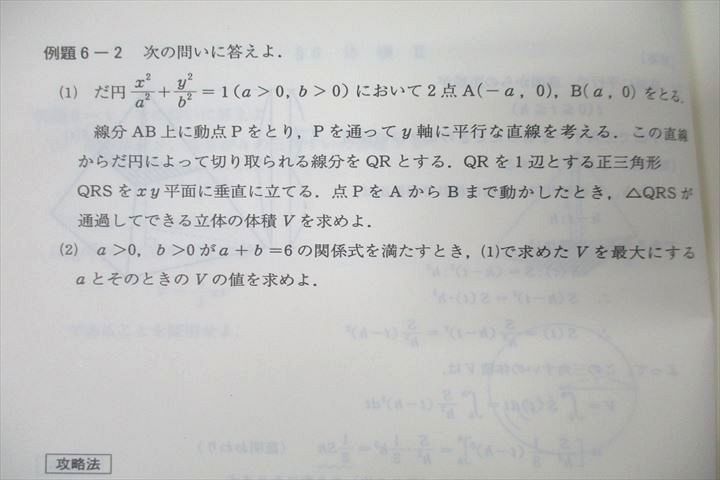 例題6-2 次の問いに答えよ.
(1) だ円 x²/a² + y²/b² = 1 (a > 0, b > 0) において2点 A(-a, 0), B(a, 0) をとる.
線分 AB 上に動点 P をとり, P を通って y 軸に平行な直線を考える. この直線
からだ円によって切り取られる線分を QR とする. QR を1辺とする正三角形
QRS を xy 平面に垂直に立てる. 点 P を A から B まで動かしたとき, △QRS が
通過してできる立体の体積 V を求めよ.
(2) a>0, b>0 が a+b=6 の関係式を満たすとき, (1)で求めた V を最大にする
a とそのときの V の値を求めよ.
攻略法